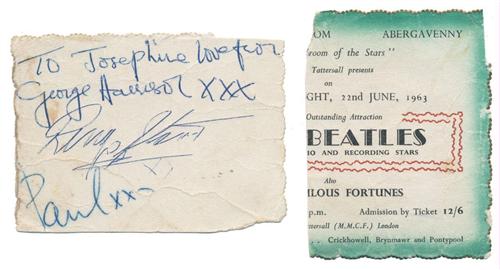 To Josephine love from
George Harrison XXX
Ringo Starr
Paul xx
OM ABERGAVENNY
room of the Stars"
Tattersall presents
on
GHT, 22nd JUNE, 1963
Outstanding Attraction
BEATLES
IO AND RECORDING STARS
Also
ULOUS FORTUNES
p.m. Admission by Ticket 12/6
ersall (M.M.C.F.) London
.. Crickhowell, Brynmawr and Pontypool